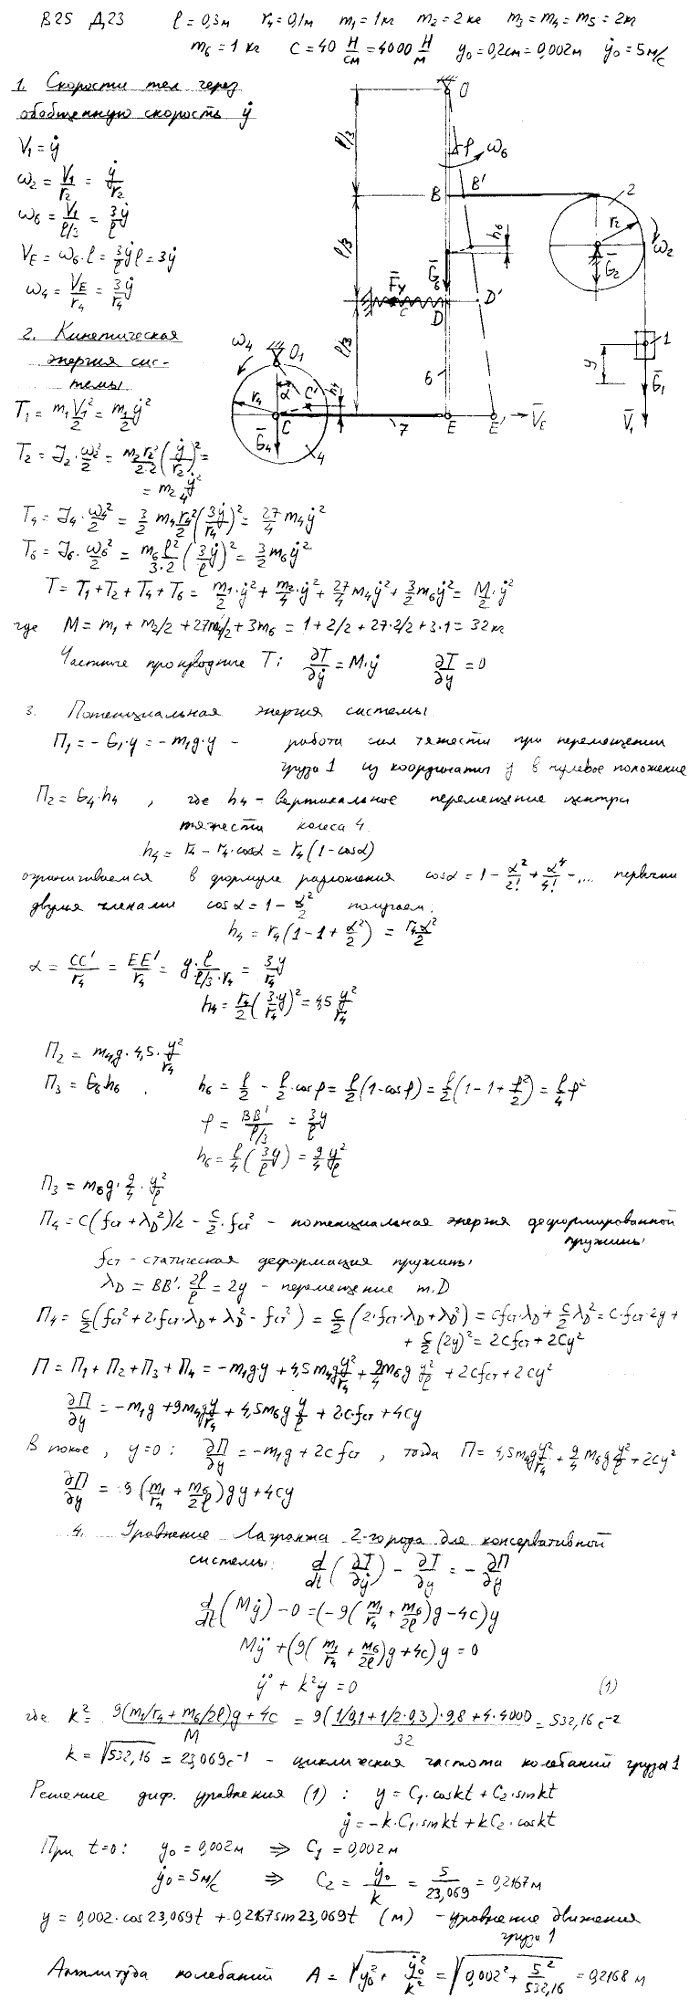 В25 Д23 ℓ = 0,3м r₄ = 0,1м m₁ = 1кг m₂ = 2кг m₃ = m₄ = m₅ = 2кг
m₆ = 1 кг C = 40 Н/см = 4000 Н/м y₀ = 0,2см = 0,002м ẏ₀ = 5м/с
1. Скорости тел через
обобщенную скорость ẏ
V₁ = ẏ
ω₂ = V₁/r₂ = ẏ/r₂
ω₆ = V₁/(ℓ/3) = 3ẏ/ℓ
V_E = ω₆·ℓ = (3/ℓ)ẏℓ = 3ẏ
ω₄ = V_E/r₄ = 3ẏ/r₄
O
ℓ/3
φ
ω₆
B
B'
2
r₂
ω₂
G₂
ℓ/3
h₆
G₆
F_у
C
D
D'
ℓ/3
6
1
y
G₁
V₁
ω₄
O₁
α
C'
h₄
r₄
C
G₄
4
7
E
E'
V_E
2. Кинетическая
энергия сис-
темы
T₁ = m₁V₁²/2 = m₁/2 ẏ²
T₂ = J₂·ω₂²/2 = m₂r₂²/2·2 (ẏ/r₂)² =
= m₂ ẏ²/4
T₄ = J₄·ω₄²/2 = 3/2 m₄r₄²/2 (3ẏ/r₄)² = 27/4 m₄ẏ²
T₆ = J₆·ω₆²/2 = m₆ℓ²/3·2 (3ẏ/ℓ)² = 3/2 m₆ẏ²
T = T₁ + T₂ + T₄ + T₆ = m₁/2·ẏ² + m₂/4·ẏ² + 27/4 m₄ẏ² + 3/2 m₆ẏ² = M/2·ẏ²
где M = m₁ + m₂/2 + 27m₄/2 + 3m₆ = 1 + 2/2 + 27·2/2 + 3·1 = 32кг
Частные производные T: ∂T/∂ẏ = M·ẏ ∂T/∂y = 0
3. Потенциальная энергия системы
П₁ = - G₁·y = - m₁g·y - работа сил тяжести при перемещении
груза 1 из координаты y в нулевое положение
П₂ = G₄·h₄ , где h₄ - вертикальное перемещение центра
тяжести колеса 4.
h₄ = r₄ - r₄·cosα = r₄(1 - cosα)
ограничиваемся в формуле разложения cosα = 1 - α²/2! + α⁴/4! - ,... первыми
двумя членами cosα = 1 - α²/2 получаем:
h₄ = r₄(1 - 1 + α²/2) = r₄α²/2
α = CC'/r₄ = EE'/r₄ = y·ℓ/(ℓ/3·r₄) = 3y/r₄
h₄ = r₄/2 (3·y/r₄)² = 4,5 y²/r₄
П₂ = m₄g·4,5·y²/r₄
П₃ = G₆h₆ . h₆ = ℓ/2 - ℓ/2·cosφ = ℓ/2(1-cosφ) = ℓ/2(1 - 1 + φ²/2) = ℓ/4 φ²
φ = BB'/(ℓ/3) = 3y/ℓ
h₆ = ℓ/4 (3y/ℓ) = 9/4 y²/ℓ
П₃ = m₆g·9/4·y²/ℓ
П₄ = C(f_ст + λ_D²)/2 - C/2·f_ст² - потенциальная энергия деформированной
пружины
f_ст - статическая деформация пружины
λ_D = BB'·2ℓ/ℓ = 2y - перемещение т.D
П₄ = C/2(f_ст² + 2·f_ст·λ_D + λ_D² - f_ст²) = C/2(2·f_ст·λ_D + λ_D²) = Cf_ст·λ_D + C/2 λ_D² = C·f_ст·2y +
+ C/2(2y)² = 2Cf_ст + 2Cy²
П = П₁ + П₂ + П₃ + П₄ = -m₁g·y + 4,5m₄g y²/r₄ + 9/4 m₆g y²/ℓ + 2Cf_ст + 2Cy²
∂П/∂y = -m₁g + 9m₄g y/r₄ + 4,5m₆g y/ℓ + 2·C·f_ст + 4Cy
В покое, y=0: ∂П/∂y = -m₁g + 2Cf_ст , тогда П = 4,5m₄g y²/r₄ + 9/4 m₆g y²/ℓ + 2Cy²
∂П/∂y = 9(m₁/r₄ + m₆/2ℓ)gy + 4Cy
4. Уравнение Лагранжа 2-города для консервативной
системы: d/dt(∂T/∂ẏ) - ∂T/∂y = - ∂П/∂y
d/dt(Mẏ) - 0 = (-9(m₁/r₄ + m₆/2ℓ)g - 4c)y
Mÿ + (9(m₁/r₄ + m₆/2ℓ)g + 4c)y = 0
ÿ + k²y = 0 (1)
где k² = (9(m₁/r₄ + m₆/2ℓ)g + 4c)/M = (9(1/0,1 + 1/2·0,3)·9,8 + 4·4000)/32 = 532,16 с⁻²
k = √532,16 = 23,069с⁻¹ - циклическая частота колебаний груза 1
Решение диф. уравнения (1): y = C₁·coskt + C₂·sinkt
ẏ = -k·C₁·sinkt + kC₂·coskt
При t=0: y₀ = 0,002м ⇒ C₁ = 0,002м
ẏ₀ = 5м/с ⇒ C₂ = ẏ₀/k = 5/23,069 = 0,2167м
y = 0,002·cos23,069t + 0,2167sin23,069t (м) - уравнение движения
груза 1
Амплитуда колебаний A = √(y₀² + ẏ₀²/k²) = √(0,002² + 5²/532,16) = 0,2168 м